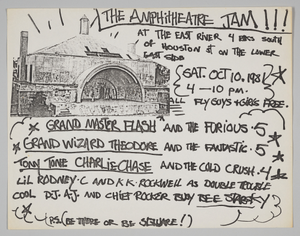 THE AMPHITHEATRE JAM!!!
AT THE EAST RIVER 4 BLKS SOUTH
OF HOUSTON ST ON THE LOWER
EAST SIDE
SAT. OCT 10, 1981
4 - 10 PM.
ALL FLY GUYS & GIRLS FREE.
GRAND MASTER FLASH AND THE FURIOUS · 5
GRAND WIZARD THEODORE AND THE FANTASTIC · 5
TONY TONE CHARLIE CHASE AND THE COLD CRUSH · 4
LIL RODNEY · C AND K.K. ROCKWELL AS DOUBLE TROUBLE
COOL D.J. A.J. AND CHIEF ROCKER BUSY BEE STARSKY
P.S. (BE THERE OR BE SQUARE!)